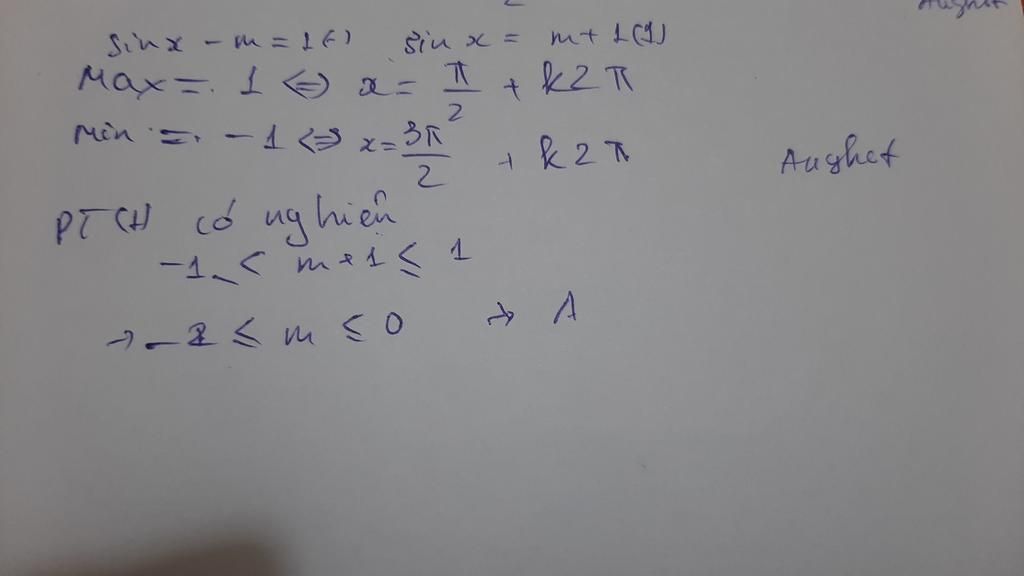 Aughet
sinx - m = 1(1) sin x = m + 1(1)
Max = 1 <=> x = π/2 + k2π
Min = -1 <=> x = 3π/2 + k2π
Aughet
PT(1) có nghiên
-1 ≤ m + 1 ≤ 1
→ -2 ≤ m ≤ 0 → A